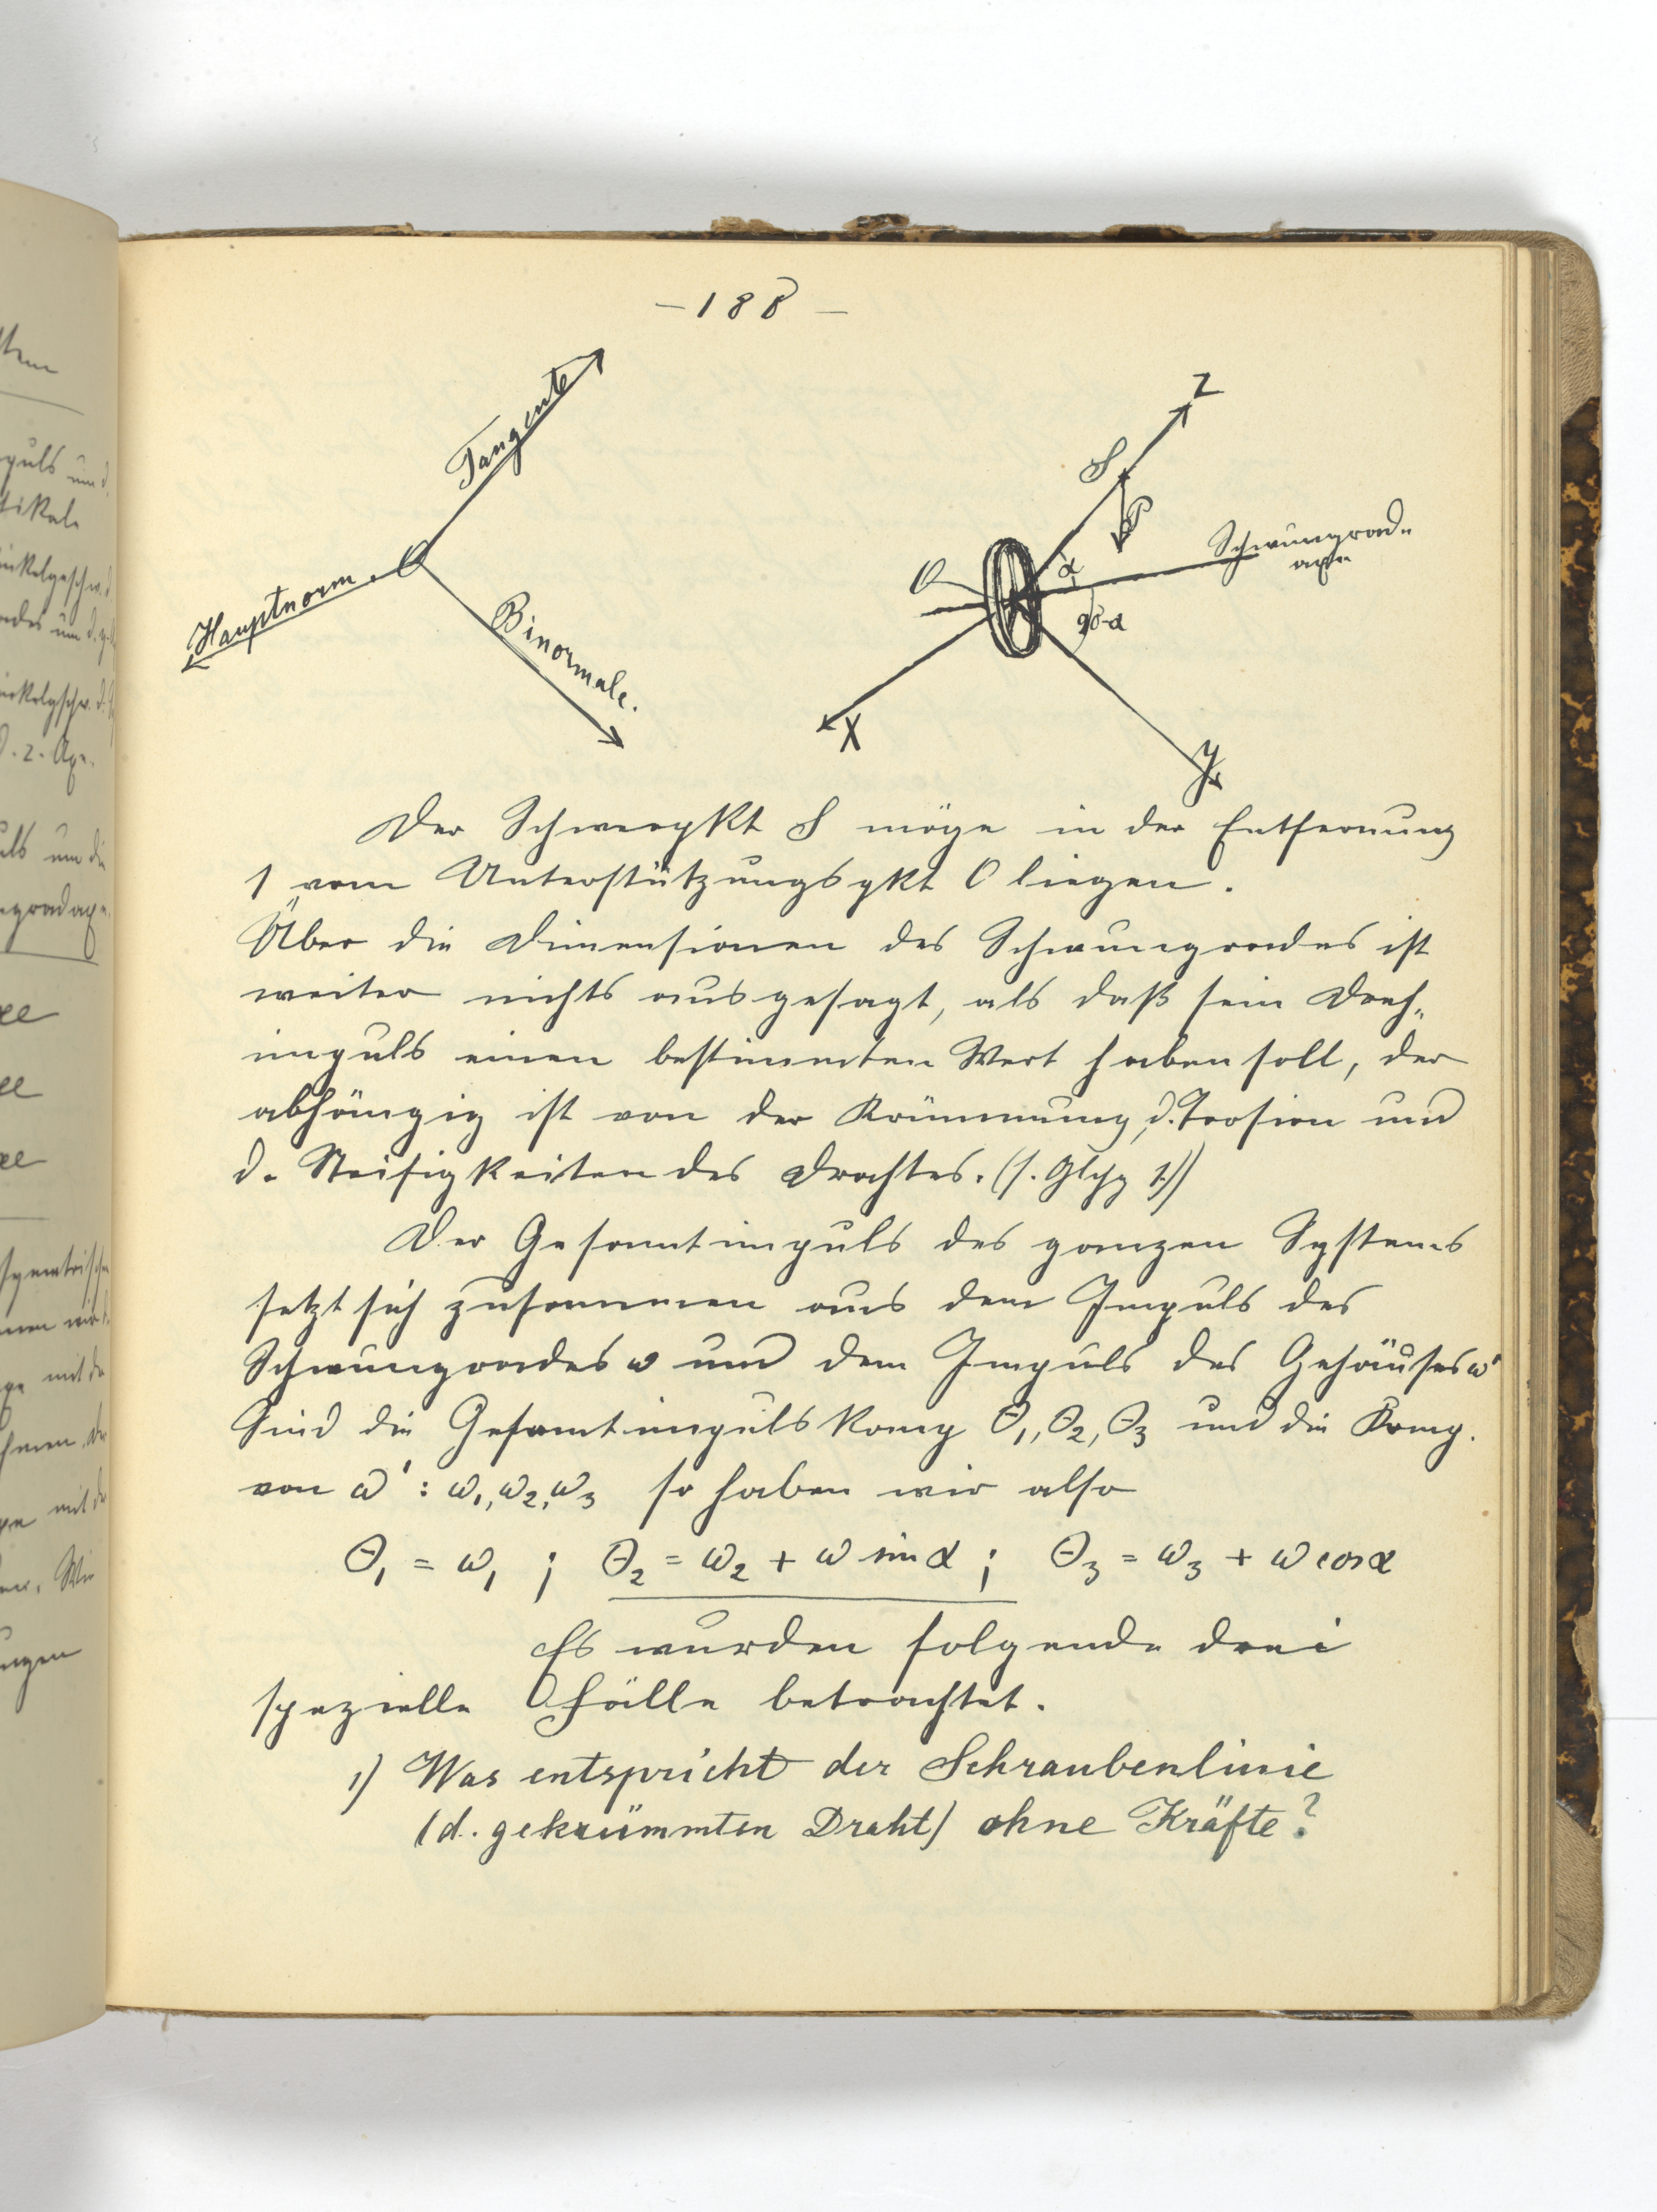 - 188 -
Tangente
O
Hauptnorm.
Binormale.
Z
S
P
α
Schwungrad-
axe
O
90-α
X
Y
Der Schwerpkt S möge in der Entfernung
1 vom Unterstützungspkt O liegen.
Über die Dimensionen des Schwungrades ist
weiter nichts ausgesagt, als daß sein Dreh-
impuls einen bestimmten Wert haben soll, der
abhängig ist von der Krümmung, d. Torsion und
d. Steifigkeiten des Drahtes. (s. Glchg 1.))
Der Gesamtimpuls des ganzen Systems
setzt sich zusammen aus dem Impuls des
Schwungrades ω und dem Impuls des Gehäuses ω'
Sind die Gesamtimpulskomp Θ₁, Θ₂, Θ₃ und die Komp.
von ω' : ω₁, ω₂, ω₃ so haben wir also
Θ₁ = ω₁ ; Θ₂ = ω₂ + ω sin α ; Θ₃ = ω₃ + ω cos α
Es wurden folgende drei
spezielle Fälle betrachtet.
1) Was entspricht der Schraubenlinie
(d. gekrümmten Draht) ohne Kräfte?